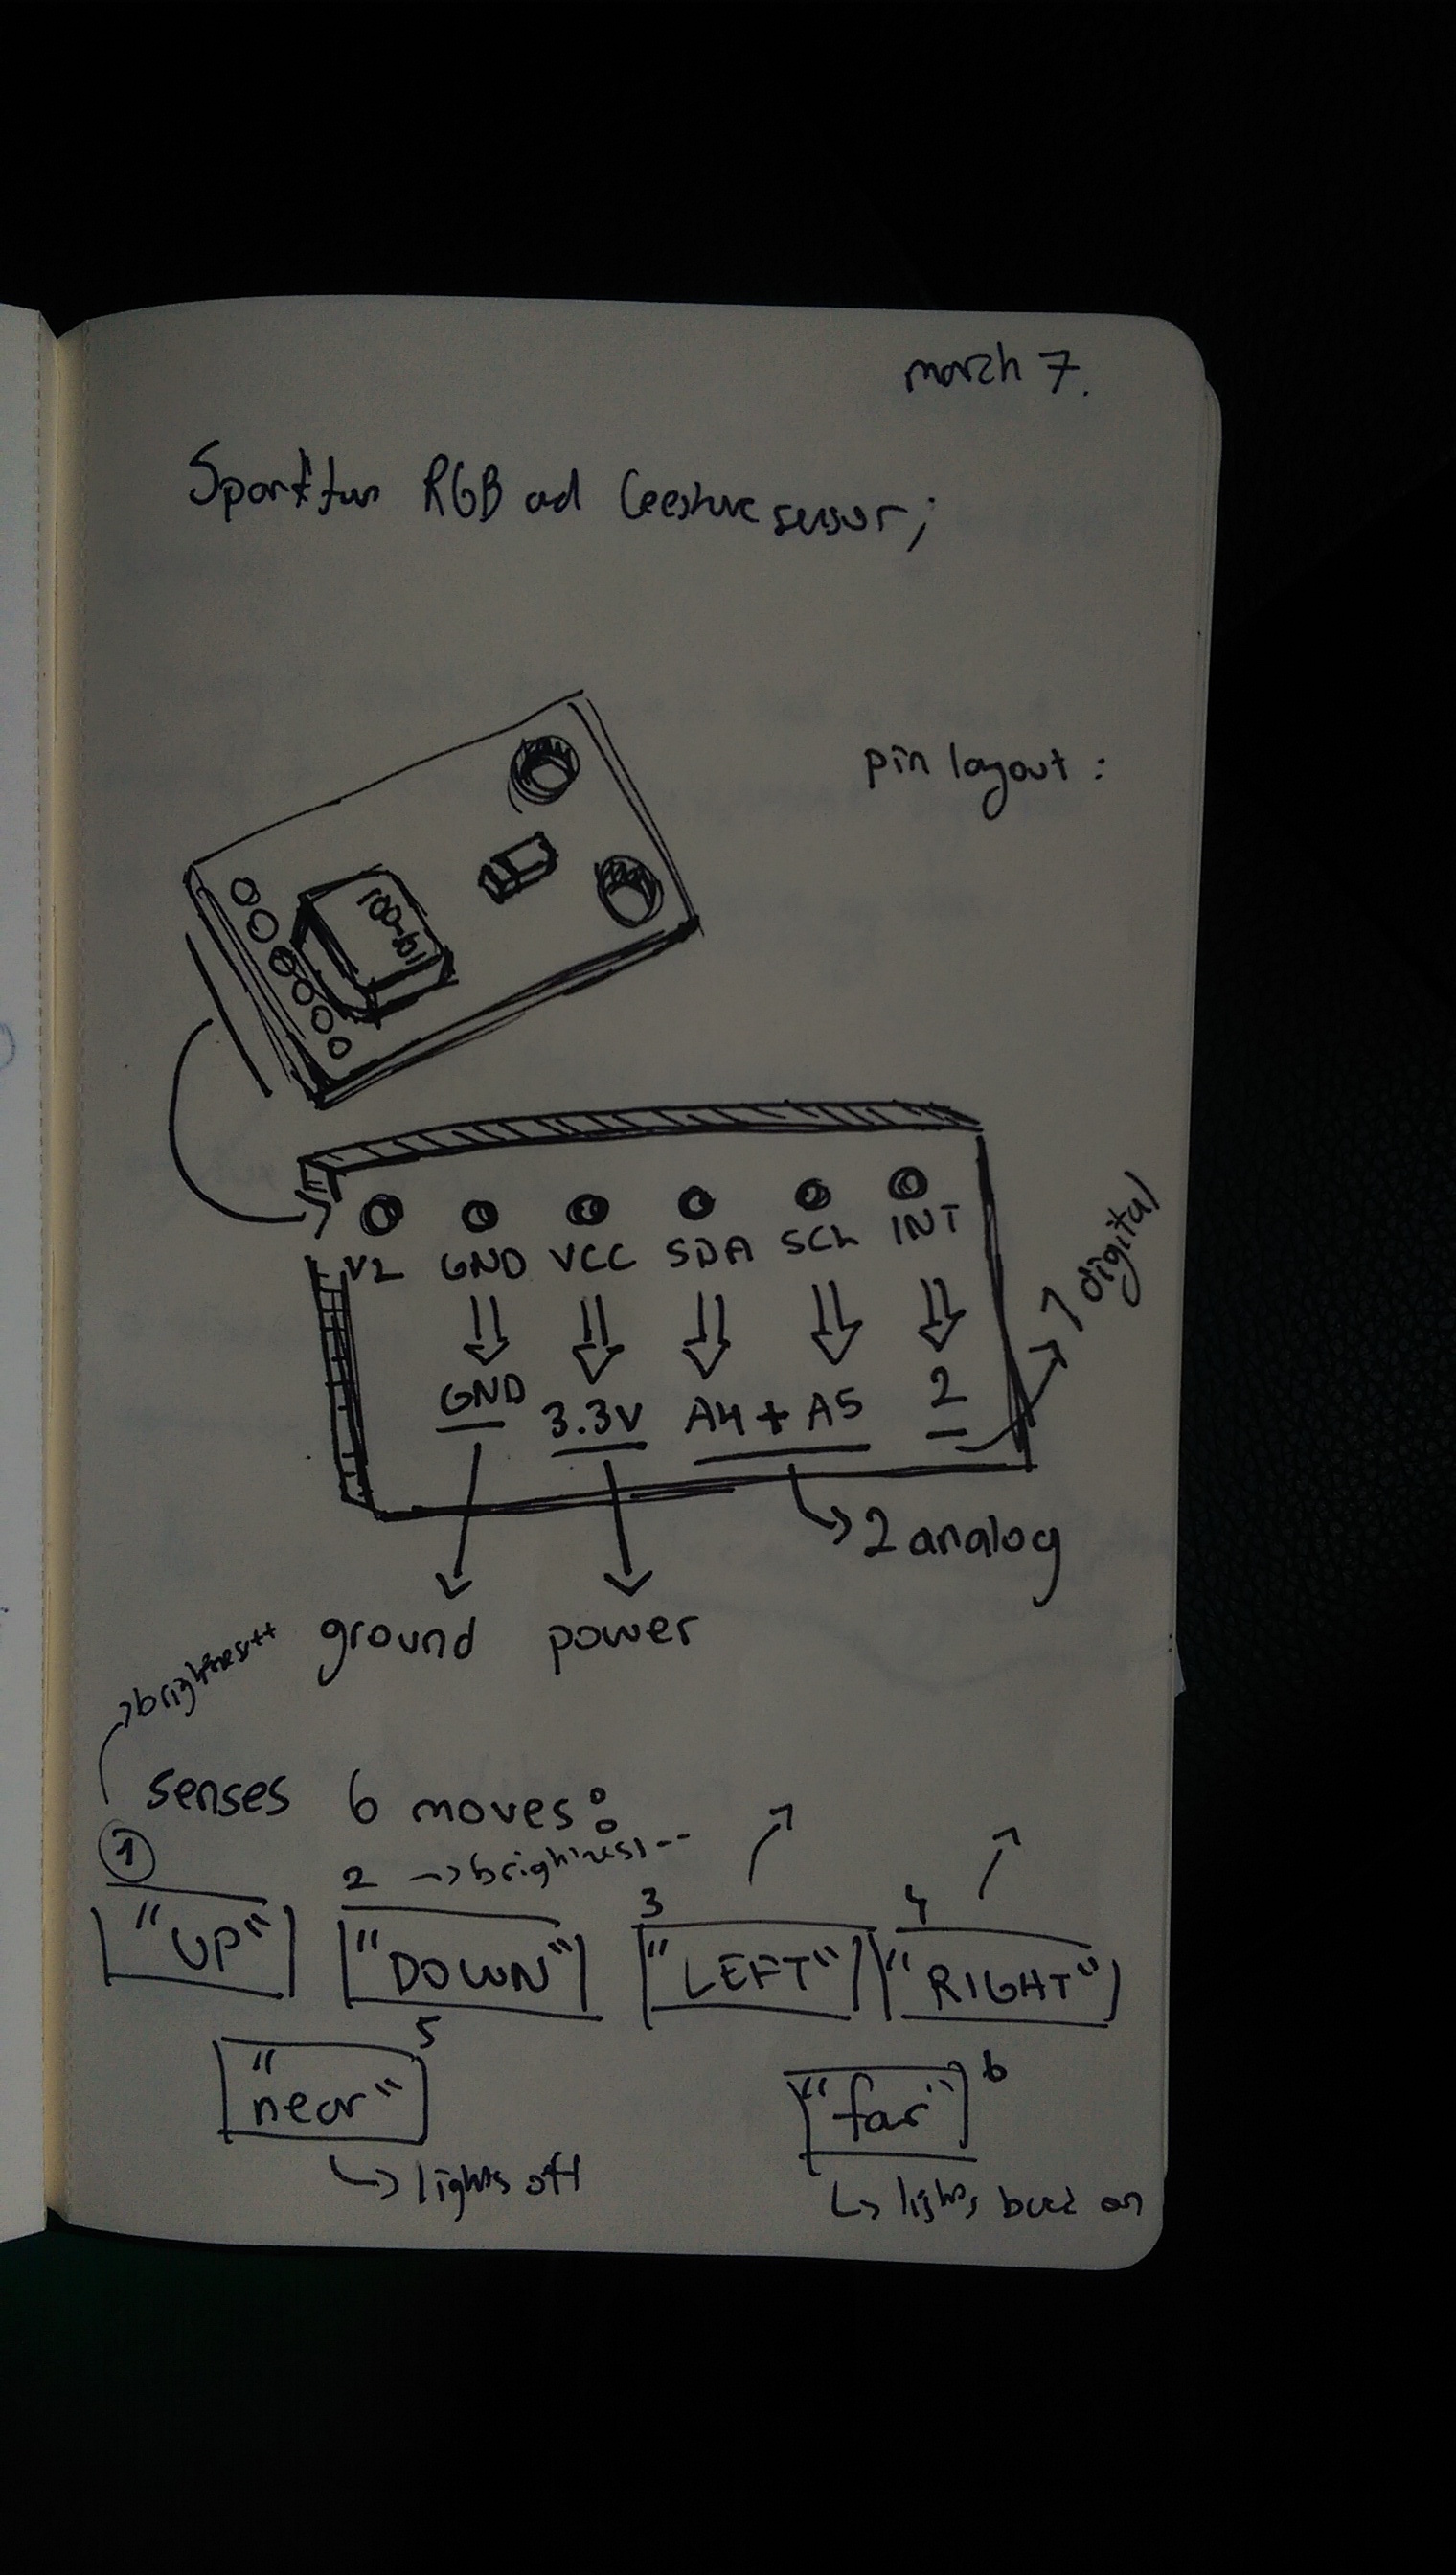 march 7.
Sparkfun RGB ad Geesture sensor;
pin layout :
100-b1
V2 GND VCC SDA SCL INT
GND 3.3V A4 + A5 2
1 digital
2 analog
ground power
brightness++
senses 6 moves:
1 2 → brightness-- 3 4
"UP" "DOWN" "LEFT" "RIGHT"
5 6
"near" "far"
lights off lights back on